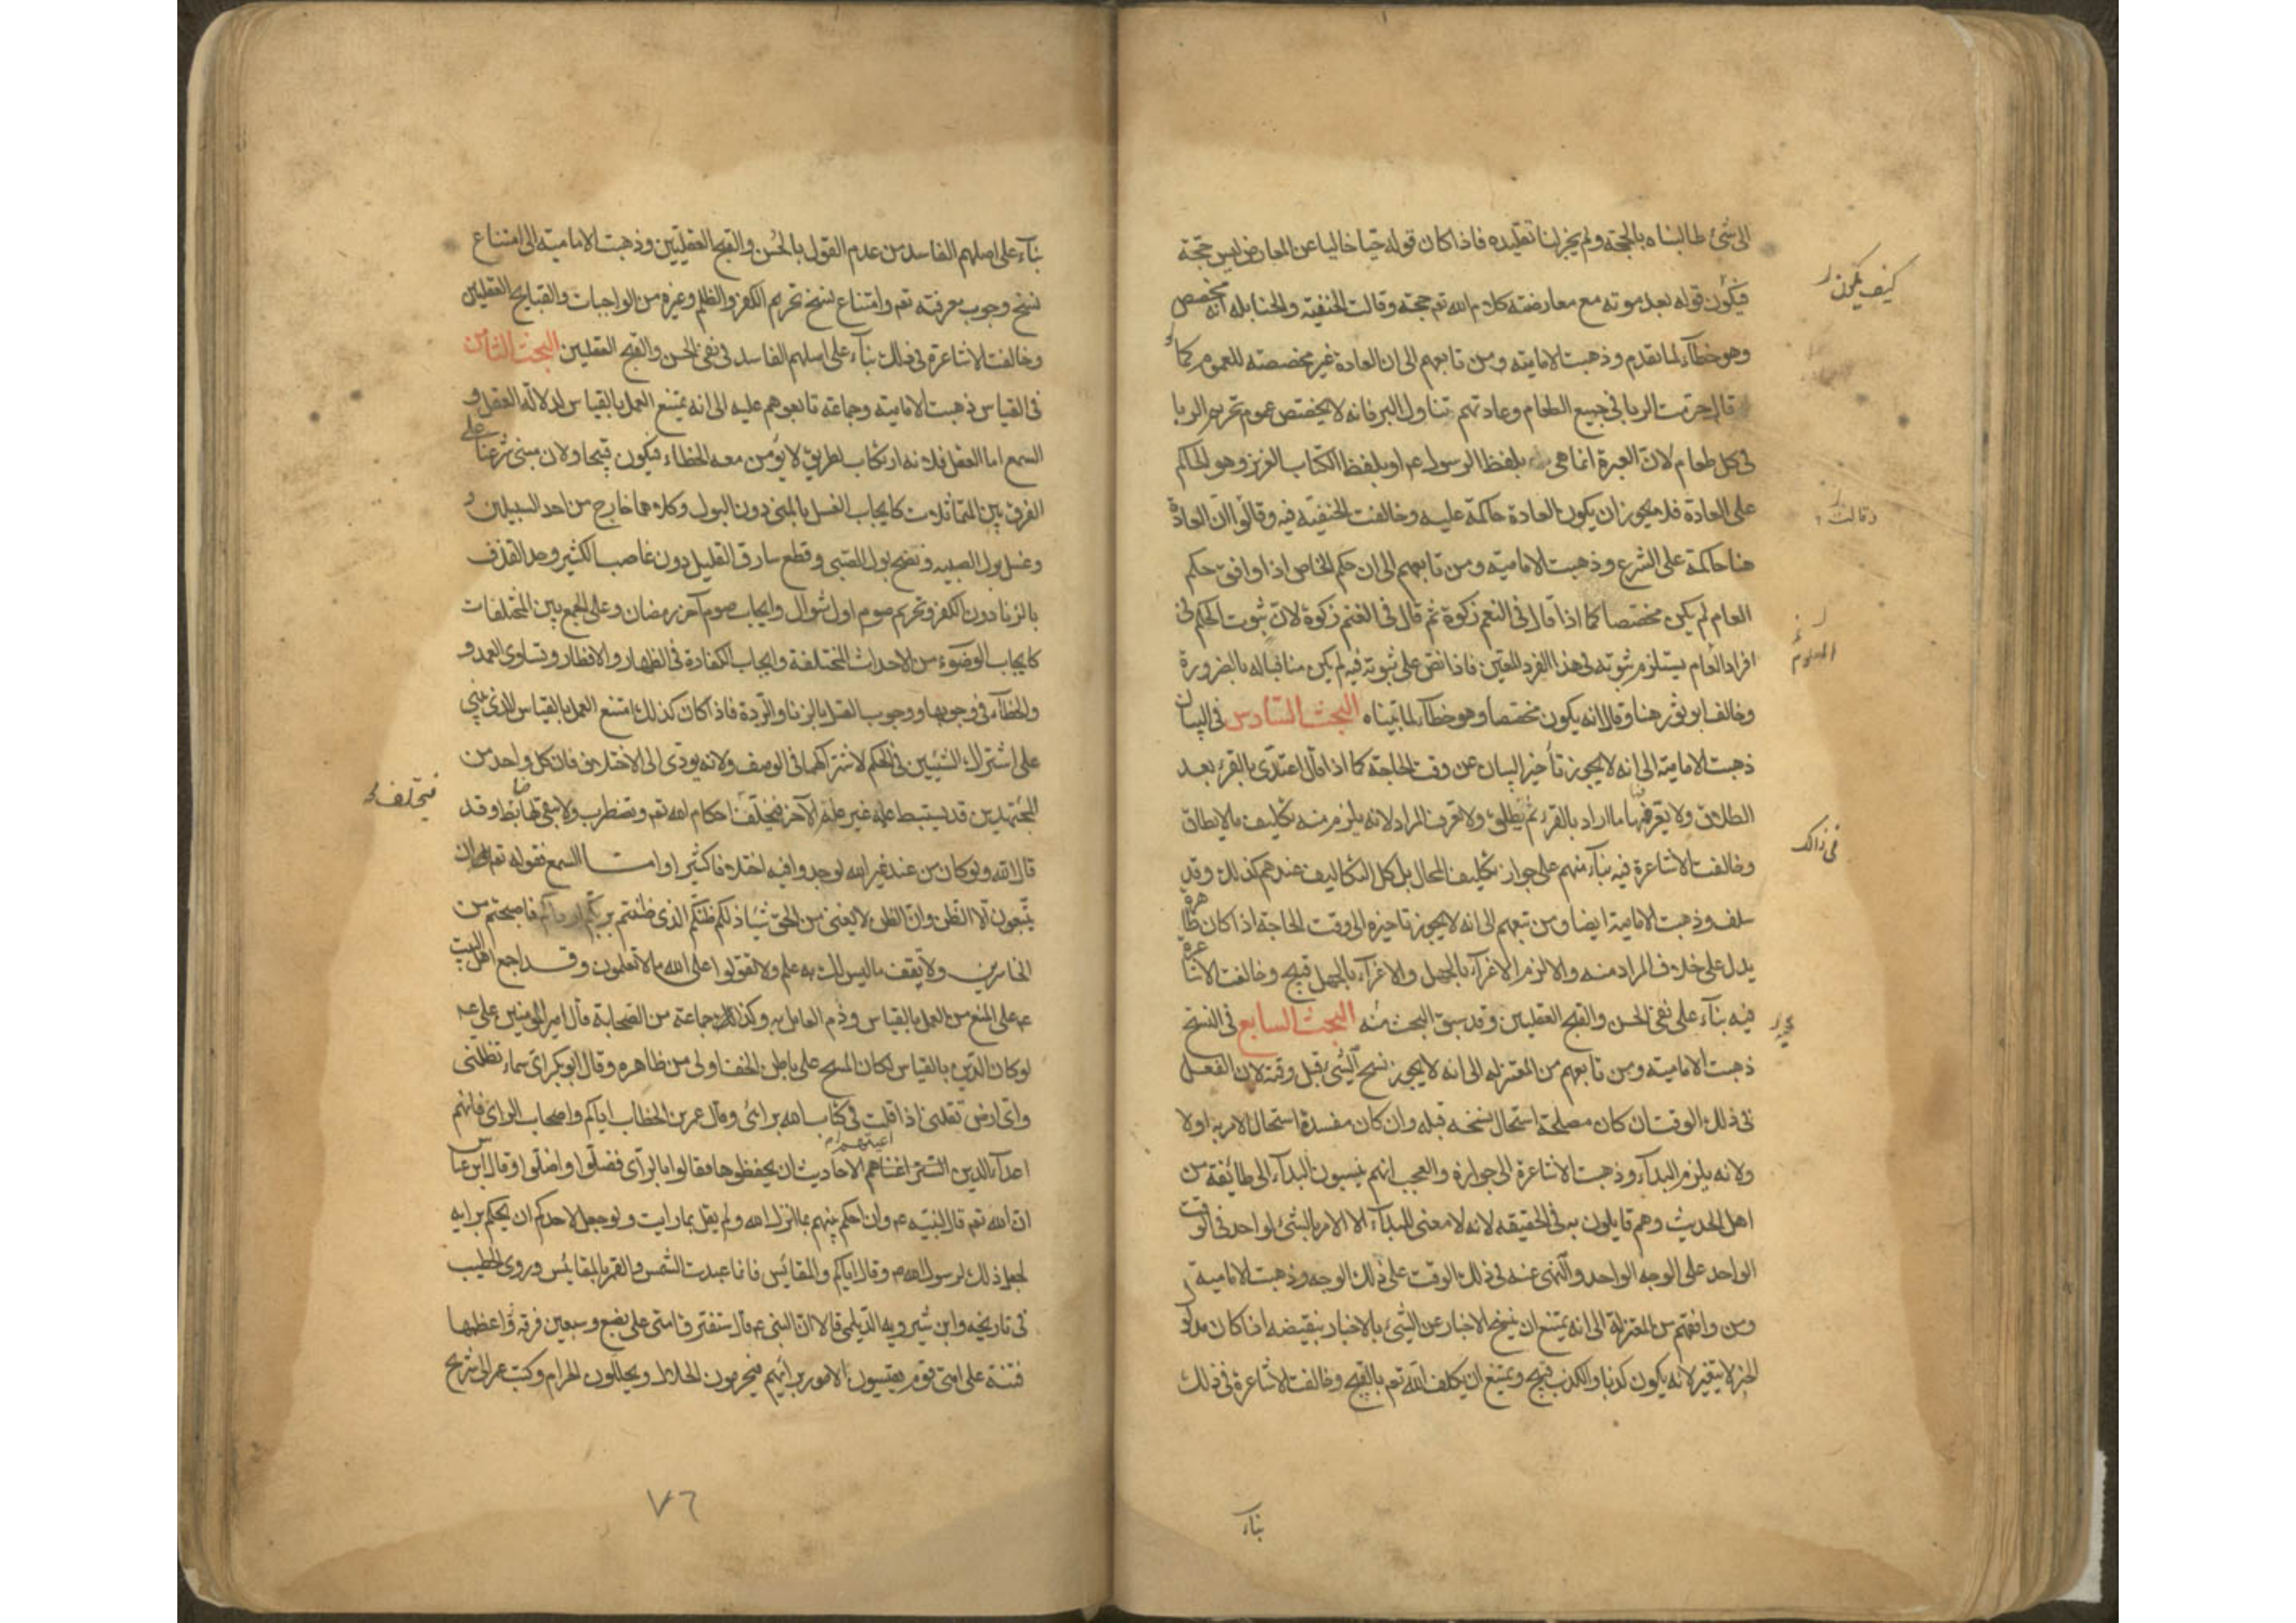 الى شئ طالبناه بالحجة ولم يجز لنا تقليده فاذا كان قوله حيا خاليا عن المعارض ليس حجة
فيكون قوله بعد موته مع معارضته كلام الله تعم حجة وقالت الحنفية والحنابله انه مخصص
وهو خطاء لما تقدم وذهبت الامامية ومن تابعهم الى ان العادة غير مخصصة للعموم كما
قال حرمت الربا في جميع الطعام وعادتهم تناول البر فانه لا يختص عموم تحريم الربا
في كل طعام لان العبرة انما هي بلفظ الرسول عم او بلفظ الكتاب العزيز وهو الحاكم
على العادة فلا يجوز ان يكون العادة حاكمة عليه وخالفت الحنفية فيه وقالوا ان العادة
هنا حاكمة على الشرع وذهبت الامامية ومن تابعهم الى ان حكم الخاص اذا وافق حكم
العام لم يكن مخصصا كما اذا قال في النعم زكوة ثم قال في الغنم زكوة لان ثبوت الحكم في
افراد العام يستلزم ثبوته في هذا الفرد المعين فاذا نص على ثبوته فيه لم يكن منافيا له بالضرورة
وخالف ابو ثور هنا وقال انه يكون مخصصا وهو خطاء لما بيناه البحث السادس في البيان
ذهبت الامامية الى انه لا يجوز تأخير البيان عن وقت الحاجة كما اذا قال اعتدى بالقرء بعد
الطلاق ولا يعرفها ما اراد بالقرء ثم يطلق ولا تعرف المراد لانه يلزم منه تكليف مالايطاق
وخالفت الاشاعرة فيه بناء منهم على جواز تكليف المحال بل كل التكاليف عندهم كذلك وقد
سلف وذهبت الامامية ايضا ومن تبعهم الى انه لا يجوز تاخيره الى وقت الحاجة اذا كان ظاهره
يدل على خلاف المراد منه والا لزم الاغراء بالجهل والاغراء بالجهل قبيح وخالفت الاشاعرة
فيه بناء على نفي الحسن والقبح العقليين وقد سبق البحث منه البحث السابع في النسخ
ذهبت الامامية ومن تابعهم من المعتزله الى انه لا يجوز نسخ الشئ قبل وقته لان الفعل
في ذلك الوقت ان كان مصلحة استحال نسخه قبله وان كان مفسدة استحال الامر به اولا
ولانه يلزم البداء وذهبت الاشاعرة الى جوازه والعجب انهم ينسبون البداء الى طائفة من
اهل الحديث وهم قايلون به في الحقيقه لانه لا معنى للبداء الا الامر بالشئ الواحد في الوقت
الواحد على الوجه الواحد والنهى عنه في ذلك الوقت على ذلك الوجه وذهبت الامامية
ومن وافقهم من المعتزلة الى انه يمتنع ان ينسخ الاخبار عن الشئ بالاخبار بنقيضه اذا كان مدلول
الخبر لا يتغير لانه يكون كذبا والكذب قبيح ويمتنع ان يكلف الله تعم بالقبيح وخالفت الاشاعرة في ذلك
بناء
كيف يكون
وقالت
في ذلك
بناء على اصلهم الفاسد من عدم القول بالحسن والقبح العقليين وذهبت الامامية الى امتناع
نسخ وجوب معرفته تعم وامتناع نسخ تحريم الكفر والظلم وغيره من الواجبات والقبايح العقليين
وخالفت الاشاعرة في ذلك بناء على اصلهم الفاسد في نفي الحسن والقبح العقليين البحث الثامن
في القياس ذهبت الامامية وجماعة تابعوهم عليه الى انه يمتنع العمل بالقياس لدلالة العقل و
السمع اما العقل فلانه ارتكاب لطريق لا يؤمن معه الخطاء فيكون قبيحا ولان مبنى شرعنا على
الفرق بين المتماثلات كايجاب الغسل بالمنى دون البول وكلاهما خارج من احد السبيلين و
وغسل بول الصبيه ونضح بول الصبى وقطع سارق القليل دون غاصب الكثير وحد القذف
بالزنا دون الكفر وتحريم صوم اول شوال وايجاب صوم آخر رمضان وعلى الجمع بين المختلفات
كايجاب الوضوء من الاحداث المختلفة وايجاب الكفارة في الظهار والافطار وتساوى العمد و
والخطاء في وجوبها ووجوب القتل بالزنا والردة فاذا كان كذلك امتنع العمل بالقياس الذى ينبى
على اشتراك الشيئين في الحكم لاشتراكهما في الوصف ولانه يودى الى الاختلاف فان كل واحد من
المجتهدين قد يستنبط علة غير علة الآخر فيختلف احكام الله تعم وتضطرب ولا يبقى لها ضابط وقد
قال الله ولو كان من عند غير الله لوجدوا فيه اختلافا كثيرا واما السمع فقوله تعم ان
يتبعون الا الظن وان الظن لا يغنى من الحق شيئا ذلكم ظنكم الذى ظننتم بربكم ارداكم فاصبحتم من
الخاسرين ولا تقف ما ليس لك به علم ولا تقولوا على الله ما لا تعلمون وقد اجمع اهل البيت
عم على المنع من العمل بالقياس وذم العامل به وكذلك جماعة من الصحابة قال امير المؤمنين على عم
لو كان الدين بالقياس لكان المسح على باطن الخف اولى من ظاهره وقال ابوبكر اى سماء تظلنى
واى ارض تقلنى اذا قلت في كتاب الله برائى وقال عمر بن الخطاب اياكم واصحاب الراى فانهم
اعداء الدين السنن اعيتهم الاحاديث ان يحفظوها فقالوا بالرأى فضلوا واضلوا وقال ابن عباس
ان الله تعم قال لنبيه عم وان احكم بينهم بما انزل الله ولم يقل بما رايت ولو جعل لاحدكم ان يحكم برايه
لجعل ذلك لرسول الله ص وقال اياكم والمقائس فانما عبدت الشمس والقمر بالمقائس وروى الخطيب
في تاريخه وابن شيرويه الديلمى قالا ان النبى عم قال ستفترق امتى على بضع وسبعين فرقة اعظمها
فتنة على امتى قوم يقيسون الامور برأيهم فيحرمون الحلال ويحللون الحرام وكتب عمر الى شريح
فيختلف
٧٦